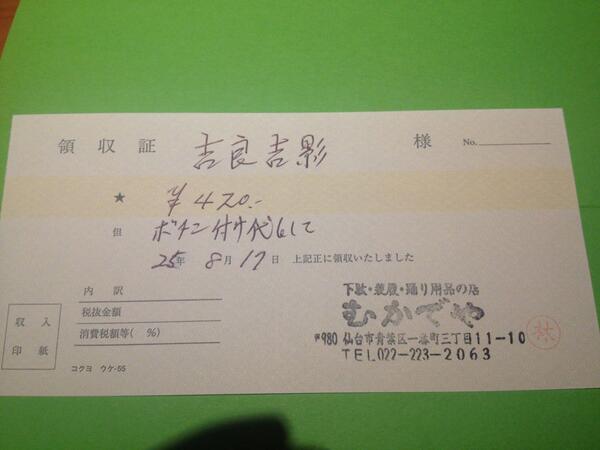 領収証 吉良吉影 様 No.
★ ¥420.-
但 ボタン付け代として
25年 8月 17日 上記正に領収いたしました
内訳
税抜金額
消費税額等( %)
収入
印紙
コクヨ ウケ-55
下駄・草履・踊り用品の店
むかでや
〒980 仙台市青葉区一番町三丁目11-10
TEL022-223-2063